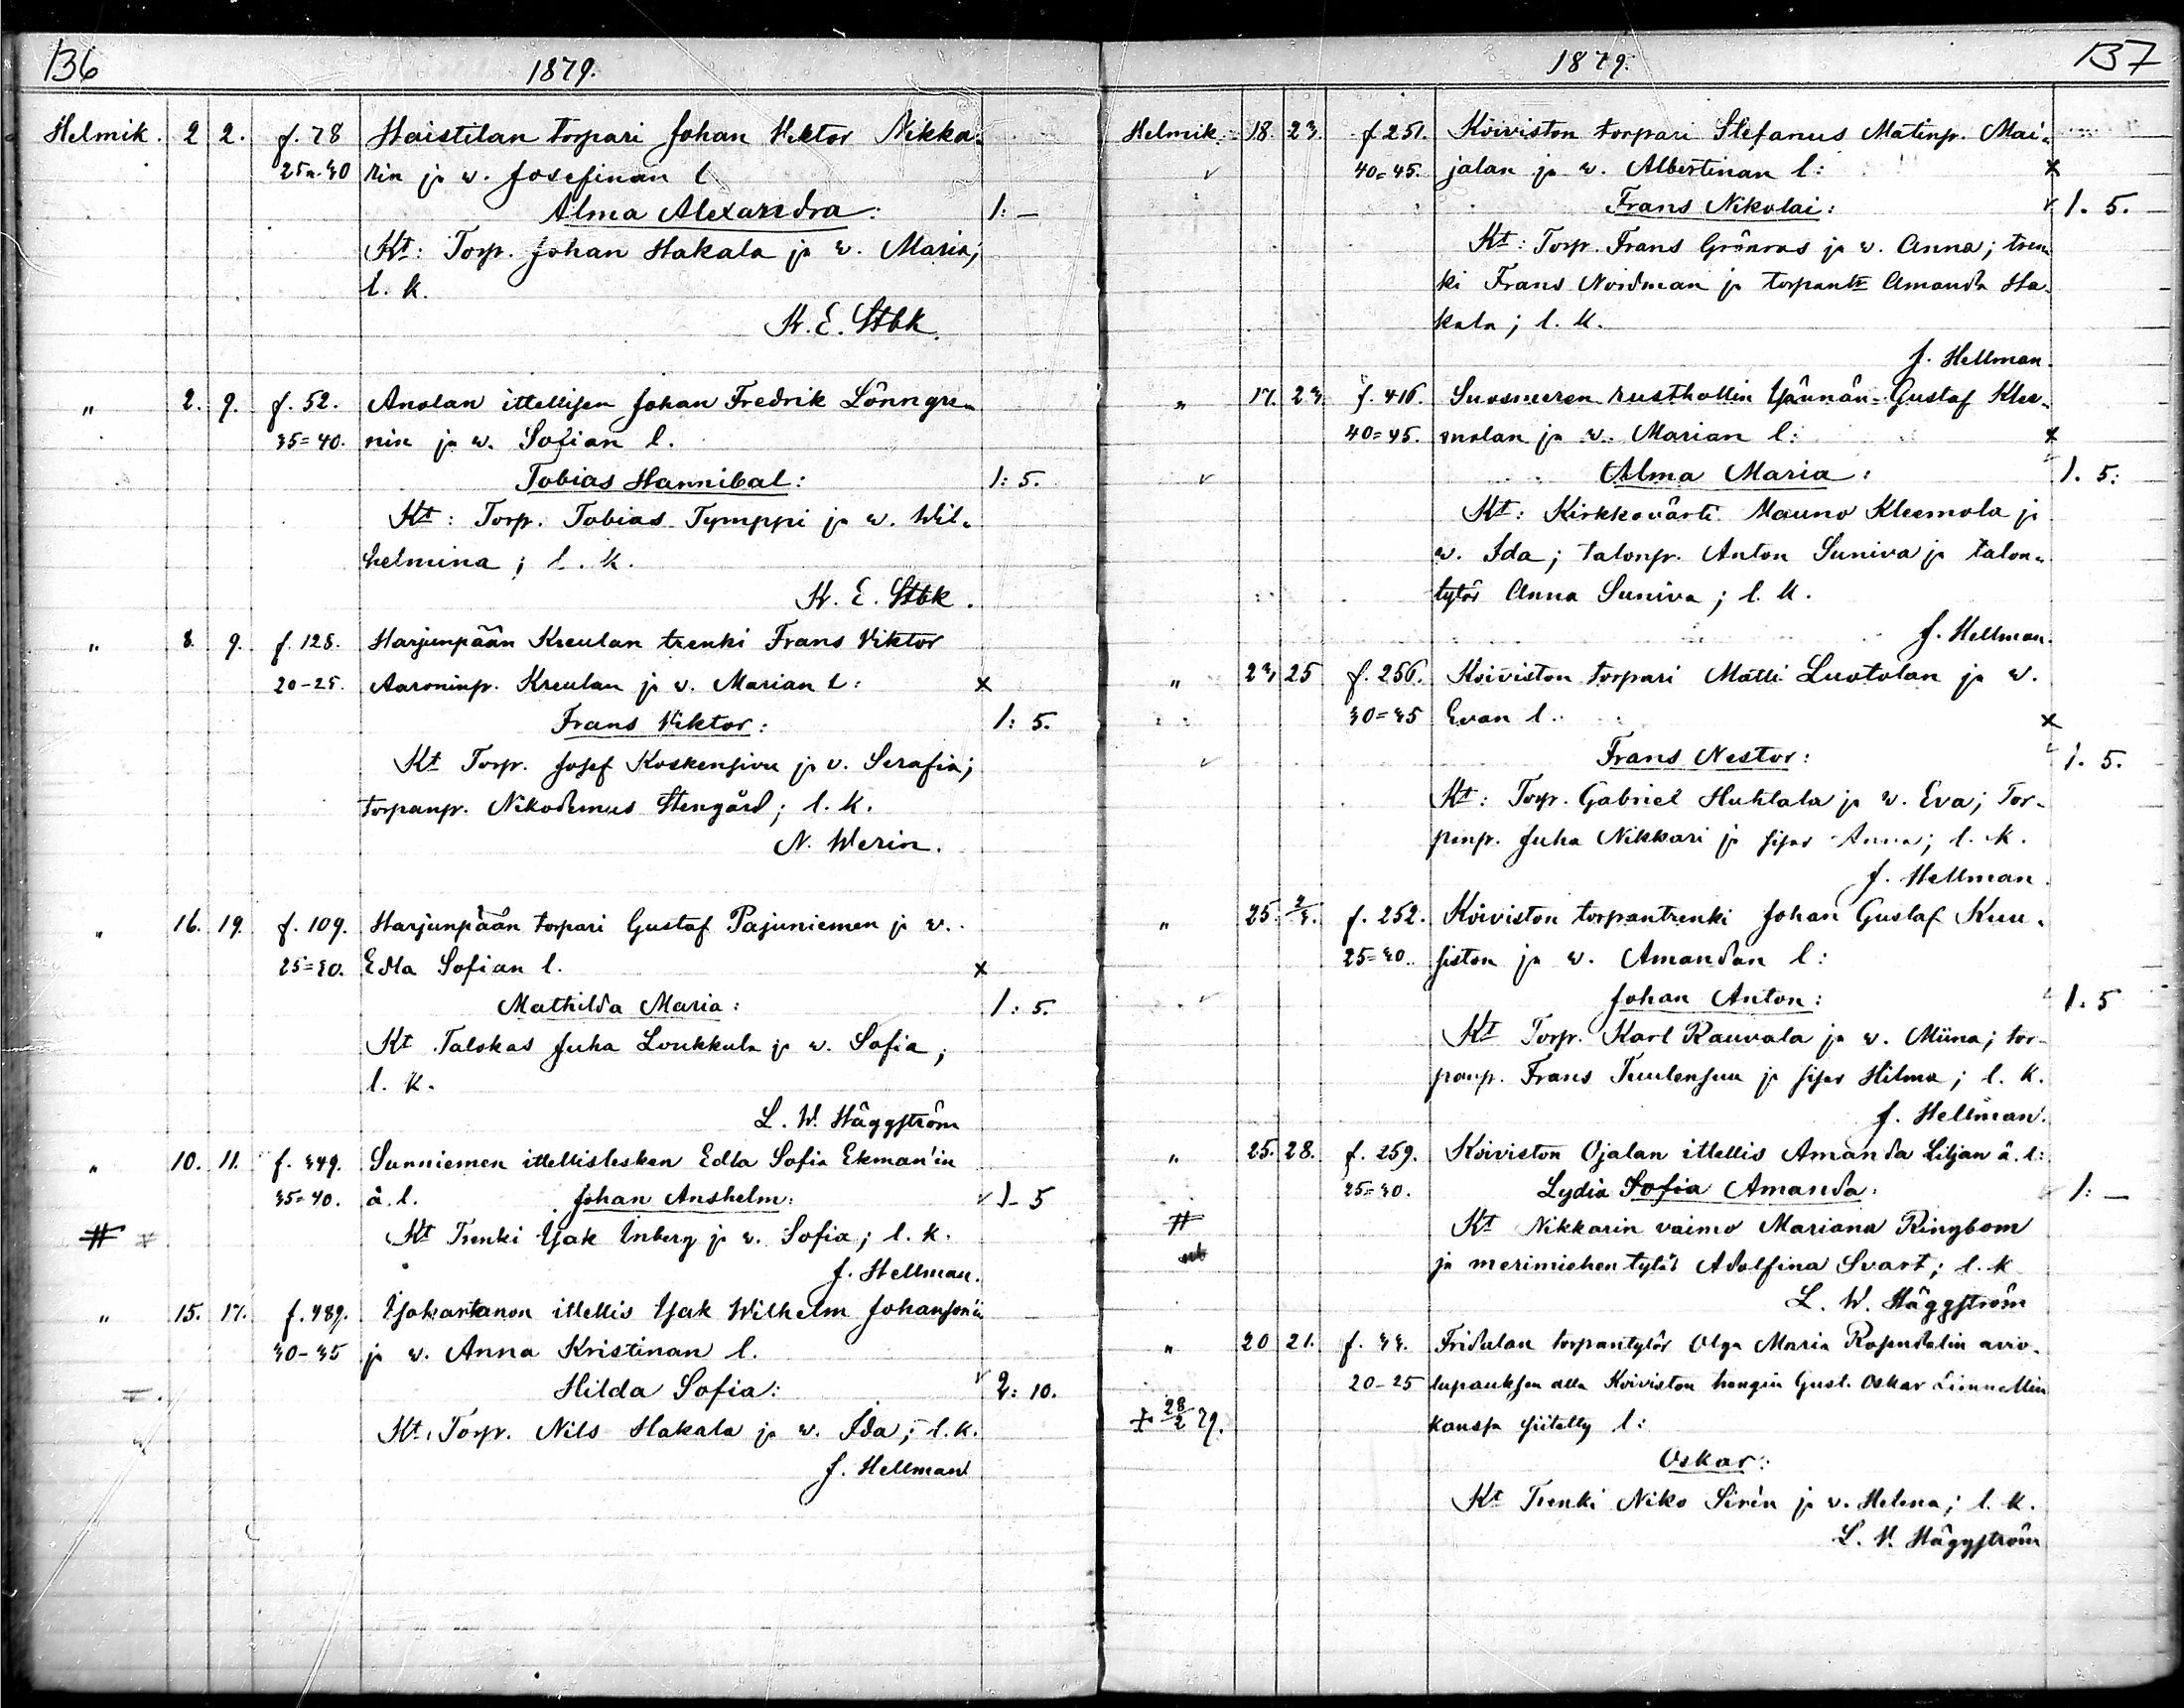 136
1879.
Helmik. 2 2. f. 78 Haistilan torpari Johan Viktor Nikka-
25-30 rin ja w. Josefinan l.
Alma Alexandra: 1: —
Kt: Torp. Johan Hakala ja w. Maria;
l. k.
K. E. Stbk.
" 2. 9. f. 52. Anolan itellisen Johan Fredrik Lönngre-
35=40. nin ja w. Sofian l.
Tobias Hannibal: 1: 5.
Kt: Torp. Tobias Tymppi ja w. Wil-
helmina; l. k.
K. E. Stbk.
" 8. 9. f. 128. Harjunpään Kreulan trenki Frans Viktor
20-25. Aaroninp. Kreulan ja v. Marian l: x
Frans Viktor: 1: 5.
Kt Torp. Josef Koskensivu ja v. Serafia;
torpanp. Nikodemus Stengård; l. k.
N. Werin.
" 16. 19. f. 109. Harjunpään torpari Gustaf Pajuniemen ja w.
25=30. Edla Sofian l. x
Mathilda Maria: 1: 5.
Kt Talokas Juha Loukkula ja w. Sofia;
l. k.
L. W. Häggström
" 10. 11. f. 349. Sunniemen itellislesken Edla Sofia Ekman'in
35=40. ä. l. Johan Anshelm: 1- 5
# Kt Trenki Isak Inberg ja w. Sofia; l. k.
J. Hellman.
" 15. 17. f. 489. Isokartanon itellis Isak Wilhelm Johanson'in
30-35 ja w. Anna Kristinan l.
Hilda Sofia: 2: 10.
Kt. Torp. Nils Hakala ja w. Ida; l. k.
J. Hellman
1879.
137
Helmik. 18. 23. f. 251. Koiviston torpari Stefanus Matinp. Mai-
40=45. jalan ja w. Albertinan l: x
Frans Nikolai: 1. 5.
Kt: Torp. Frans Grönros ja w. Anna; tren-
ki Frans Nordman ja torpantr Amanda Ha-
kala; l. k.
J. Hellman.
" 17. 23. f. 416. Suosmeren rusthollin Isännän Gustaf Klee-
40=45. molan ja w. Marian l: x
Alma Maria: 1. 5:
Kt: Kirkkovärti Mauno Kleemola ja
w. Ida; talonp. Anton Suniva ja talon-
tytär Anna Suniva; l. k.
J. Hellman.
" 23 25 f. 256. Koiviston torpari Matti Luotolan ja w.
30=35 Evan l. x
Frans Nestor: 1. 5.
Kt: Torp. Gabriel Huhtala ja w. Eva; Tor-
panp. Juha Nikkari ja sisar Anna; l. k.
J. Hellman.
" 25. 2/3. f. 252. Koiviston torpantrenki Johan Gustaf Kuu-
25=30. siston ja w. Amandan l:
Johan Anton: 1. 5
Kt Torp. Karl Rauvala ja w. Miina; tor-
panp. Frans Tuulensuu ja sisar Hilma; l. k.
J. Hellman.
" 25. 28. f. 259. Koiviston Ojalan itellis Amanda Liljan ä. l:
25=30. Lydia Sofia Amanda: 1: —
# Kt Nikkarin vaimo Mariana Ringbom
ja merimiehen tytär Adolfina Svart; l. k
L. W. Häggström
" 20 21. f. 33. Fridalan torpantytär Olga Maria Rosendalin avio-
20-25 lupauksen alla Koiviston rengin Gust. Oskar Linnellin
+ 28/2 79. kanssa siitetty l:
Oskar:
Kt Trenki Niko Sirén ja v. Helena; l. k.
L. W. Häggström